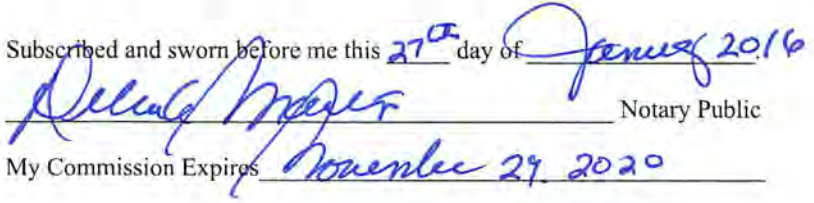 Subscribed and sworn before me this 27th day of January 2016
Notary Public
My Commission Expires November 29, 2020